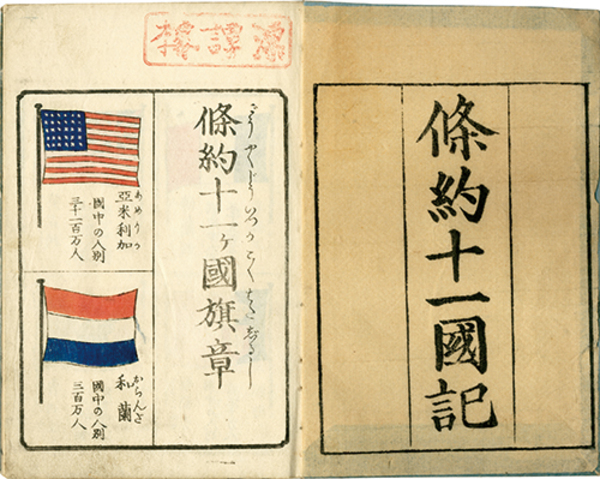 條約十一國記
條約十一ヶ國旗章
あめりか
亞米利加
國中の人別
三千一百万人
おらんだ
和蘭
國中の人別
三百万人